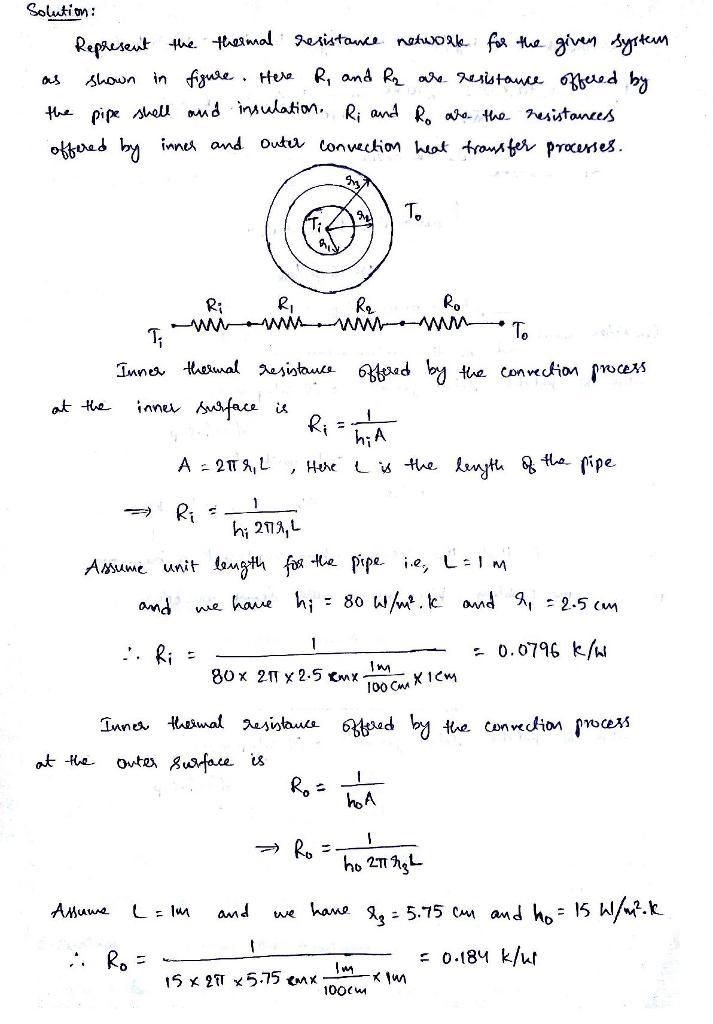 Solution:
Represent the thermal resistance network for the given system
as shown in figure. Here R₁ and R₂ are resistance offered by
the pipe shell and insulation. Rᵢ and R₀ are the resistances
offered by inner and outer convection heat transfer processes.
r₃
Tᵢ r₂ T₀
r₁
Rᵢ R₁ R₂ R₀
Tᵢ T₀
Inner thermal resistance offered by the convection process
at the inner surface is
Rᵢ = 1/(hᵢA)
A = 2πr₁L , Here L is the length of the pipe
⇒ Rᵢ = 1/(hᵢ 2πr₁L)
Assume unit length for the pipe i.e, L = 1 m
and we have hᵢ = 80 W/m².k and r₁ = 2.5 cm
∴ Rᵢ = 1/(80 × 2π × 2.5 cm × 1m/100 cm × 1cm) = 0.0796 k/W
Inner thermal resistance offered by the convection process
at the outer surface is
R₀ = 1/(h₀A)
⇒ R₀ = 1/(h₀ 2πr₃L)
Assume L = 1m and we have r₃ = 5.75 cm and h₀ = 15 W/m².k
∴ R₀ = 1/(15 × 2π × 5.75 cm × 1m/100cm × 1m) = 0.184 k/W